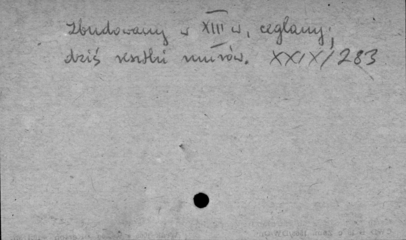 zbudowany w XIII w, ceglany;
dziś resztki murów. XXIX/283